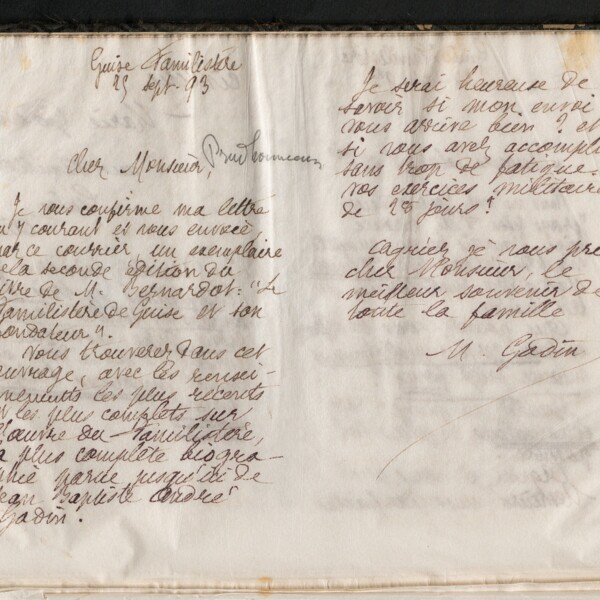 Guise Familistère
25 sept. 93
Cher Monsieur, Prudhommeaux
Je vous confirme ma lettre
du 7 courant et vous envoie
par ce courrier un exemplaire
de la seconde édition du
livre de M. Bernardot: "Le
Familistère de Guise et son
fondateur".
Vous trouverez dans cet
ouvrage, avec les rensei-
gnements les plus récents
et les plus complets sur
l'œuvre du Familistère,
la plus complète biogra-
phie parue jusqu'ici de
Jean Baptiste André
Godin.
Je serai heureuse de
savoir si mon envoi
vous arrive bien? et
si vous avez accompli
sans trop de fatigue
vos exercices militaires
de 28 jours?
Agréez je vous prie
cher Monsieur, le
meilleur souvenir de
toute la famille
M. Godin